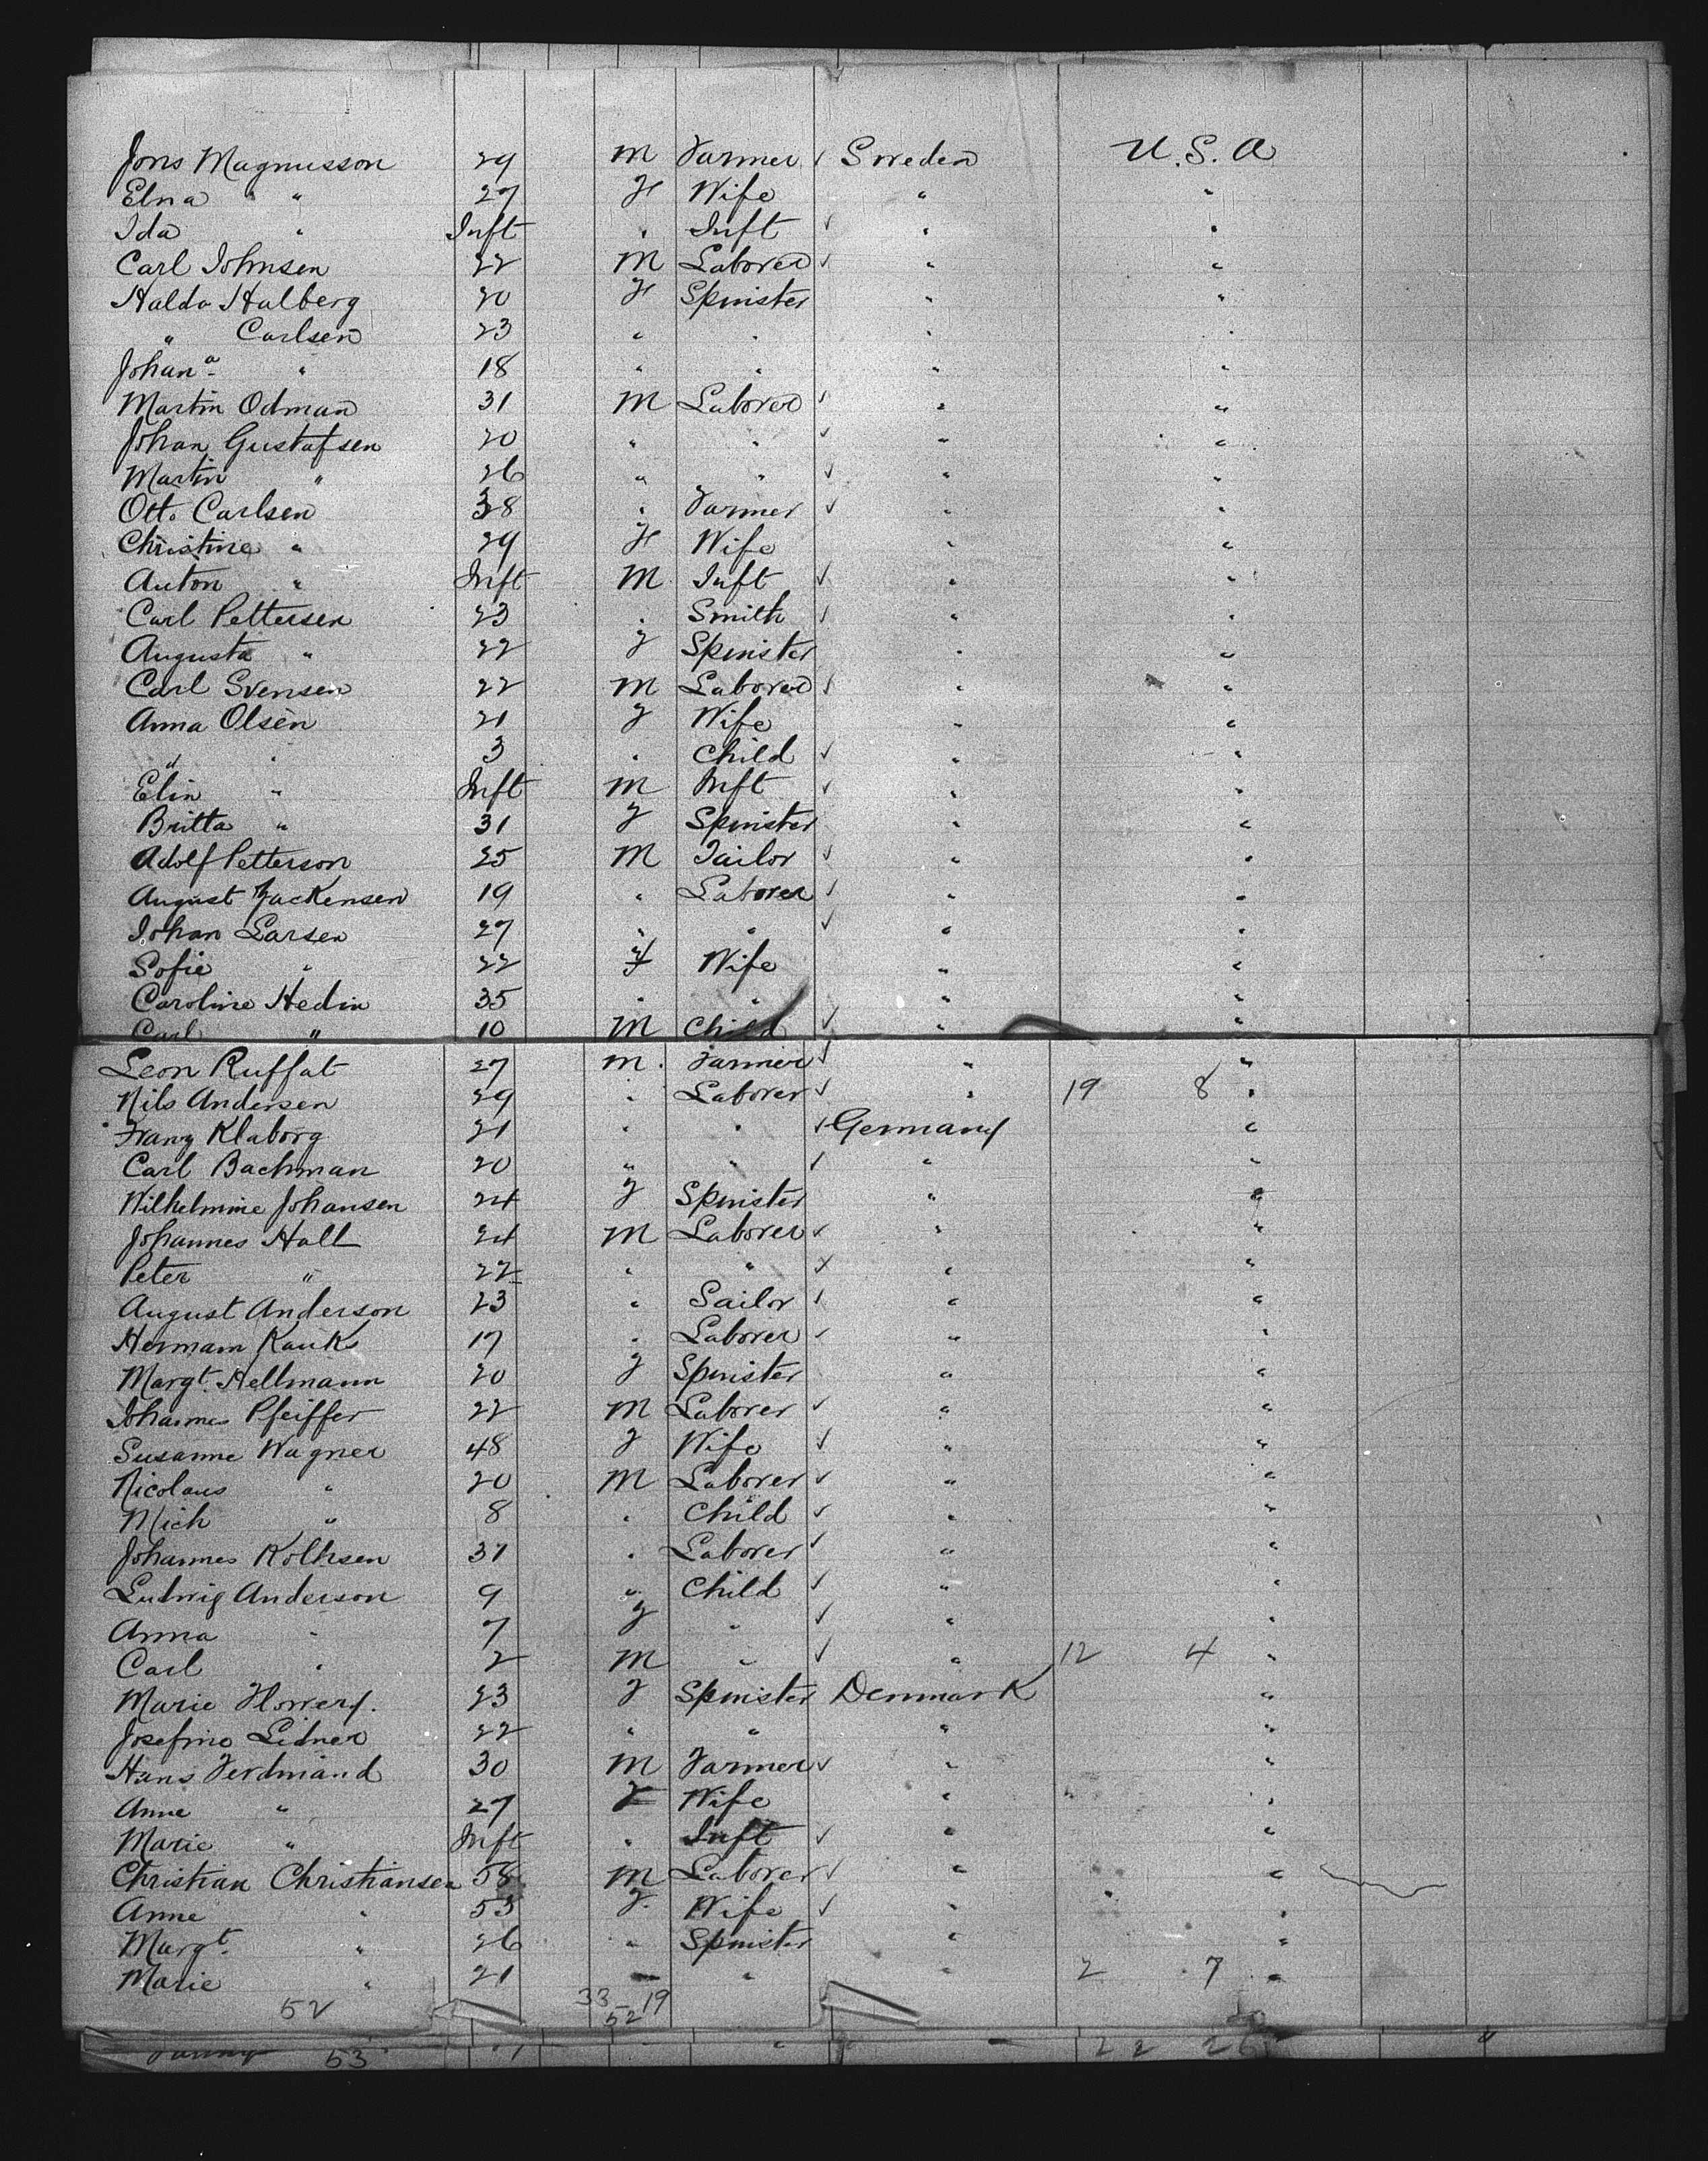 Jons Magnusson 29 M Farmer ✓ Sweden U.S.A
Elna " 27 F Wife " "
Ida " Inft " Inft ✓ " "
Carl Johnsen 22 M Laborer ✓ " "
Halda Halberg 20 F Spinster " "
" Carlsen 23 " " " "
Johanª " 18 " " " "
Martin Odman 31 M Laborer ✓ " "
Johan Gustafsen 20 " " ✓ " "
Martin " 26 " " ✓ " "
Otto Carlsen 38 " Farmer ✓ " "
Christine " 29 F Wife " "
Anton " Inft M Inft ✓ " "
Carl Pettersen 23 " Smith ✓ " "
Augusta " 22 F Spinster " "
Carl Svensen 22 M Laborer ✓ " "
Anna Olsen 21 F Wife " "
" " 3 " Child ✓ " "
Elin " Inft M Inft ✓ " "
Britta " 31 F Spinster " "
Adolf Petterson 25 M Tailor ✓ " "
August Jackensen 19 " Laborer ✓ " "
Johan Larsen 27 " " ✓ " "
Sofie " 22 F Wife " "
Caroline Hedin 35 " " " "
Carl " 10 M Child ✓ " "
Leon Ruffat 27 M. Farmer ✓ " "
Nils Andersen 29 " Laborer ✓ " 19 8 "
Franz Klaborg 21 " " ✓ Germany "
Carl Bachman 20 " " ✓ " "
Wilhelmine Johansen 24 F Spinster " "
Johannes Hall 24 M Laborer ✓ " "
Peter " 22 " " ✓ " "
August Anderson 23 " Sailor ✓ " "
Hermann Kauks 17 " Laborer ✓ " "
Margt. Hellmann 20 F Spinster " "
Johannes Pfeiffer 22 M Laborer ✓ " "
Susanne Wagner 48 F Wife ✓ " "
Nicolaus " 20 M Laborer ✓ " "
Mich " 8 " Child ✓ " "
Johannes Kolhsen 31 " Laborer ✓ " "
Ludwig Anderson 9 " Child ✓ " "
Anna " 7 F " ✓ " "
Carl " 2 M " ✓ " 12 4 "
Marie 23 F Spinster Denmark "
Josefine Lidner 22 " " " "
Hans Ferdinand 30 M Farmer ✓ " "
Anne " 27 F Wife " "
Marie " Inft " Inft ✓ " "
Christian Christiansen 58 M Laborer ✓ " "
Anne " 53 F. Wife ✓ " "
Margt. " 26 " Spinster " "
Marie " 21 " " " 2 7 "
52 33 19
52
53 22 26